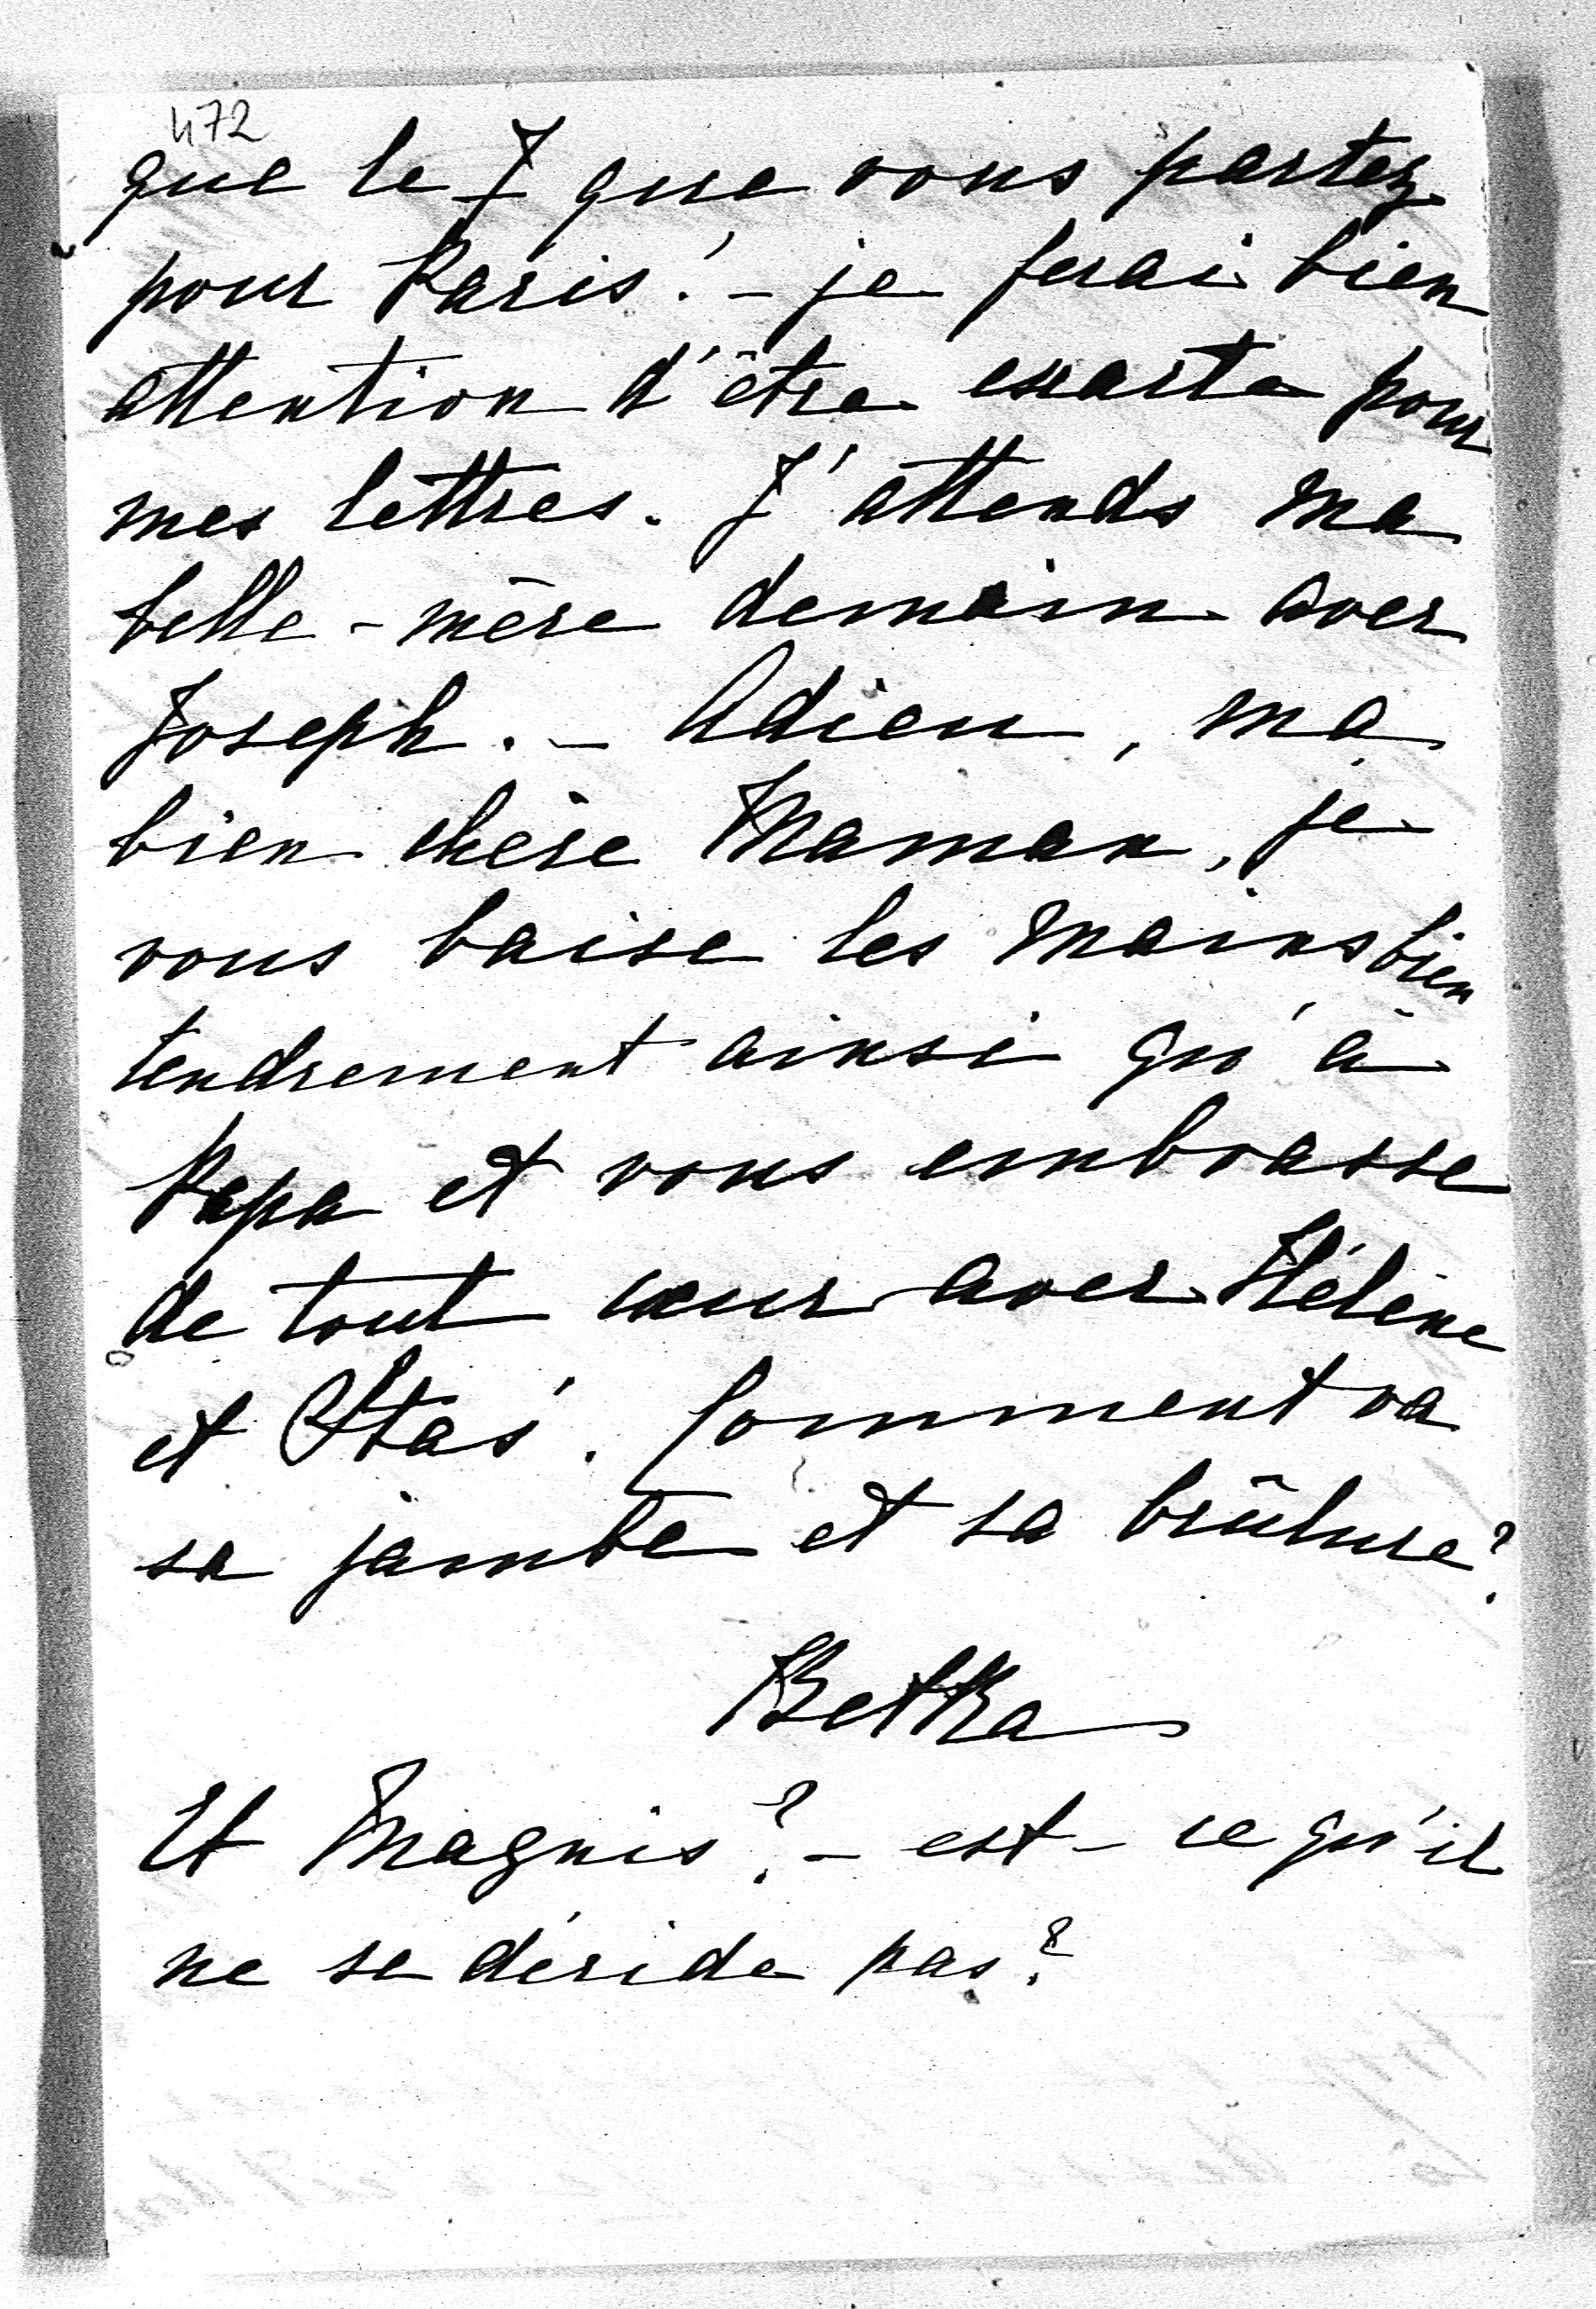 472
que le 7 que vous partez
pour Paris! – je ferai bien
attention d'être exacte pour
mes lettres. J'attends ma
belle-mère demain avec
Joseph. – Adieu, ma
bien chère Maman, je
vous baise les mains bien
tendrement ainsi qu'à
Papa et vous embrasse
de tout cœur avec Hélène
et Staś. Comment va
sa jambe et sa brûlure?
Betka
Et Magnis? – est-ce qu'il
ne se décide pas?